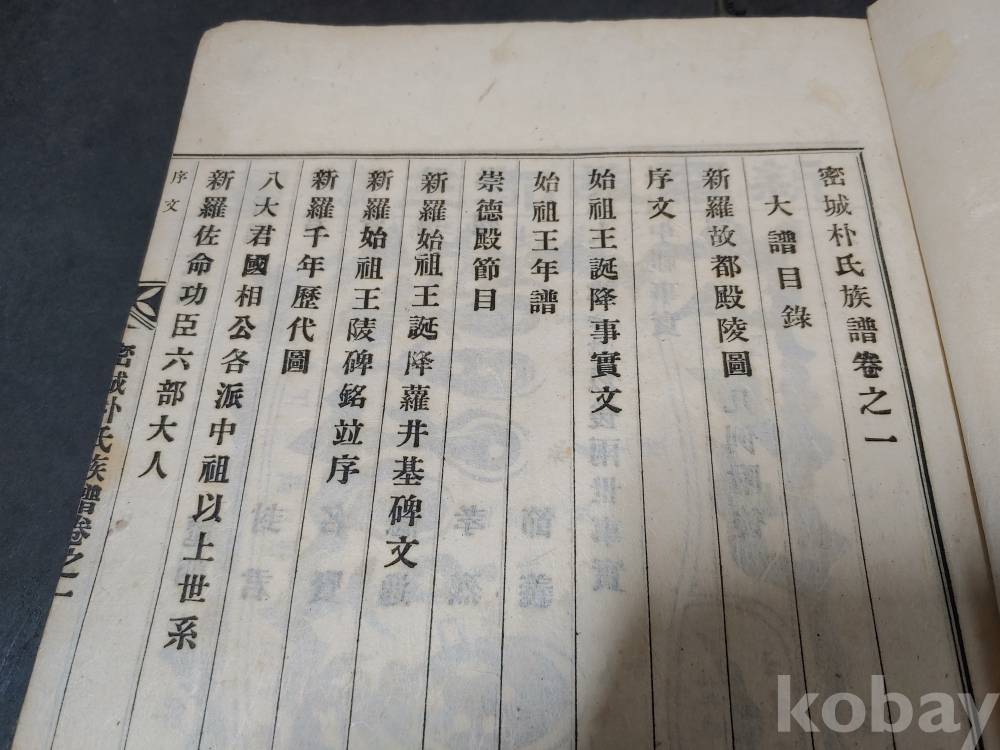 密城朴氏族譜卷之一
大譜目錄
新羅故都殿陵圖
序文
始祖王誕降事實文
始祖王年譜
崇德殿節目
新羅始祖王誕降蘿井基碑文
新羅始祖王陵碑銘竝序
新羅千年歷代圖
八大君國相公各派中祖以上世系
新羅佐命功臣六部大人
序文
密城朴氏族譜卷之一
kobay